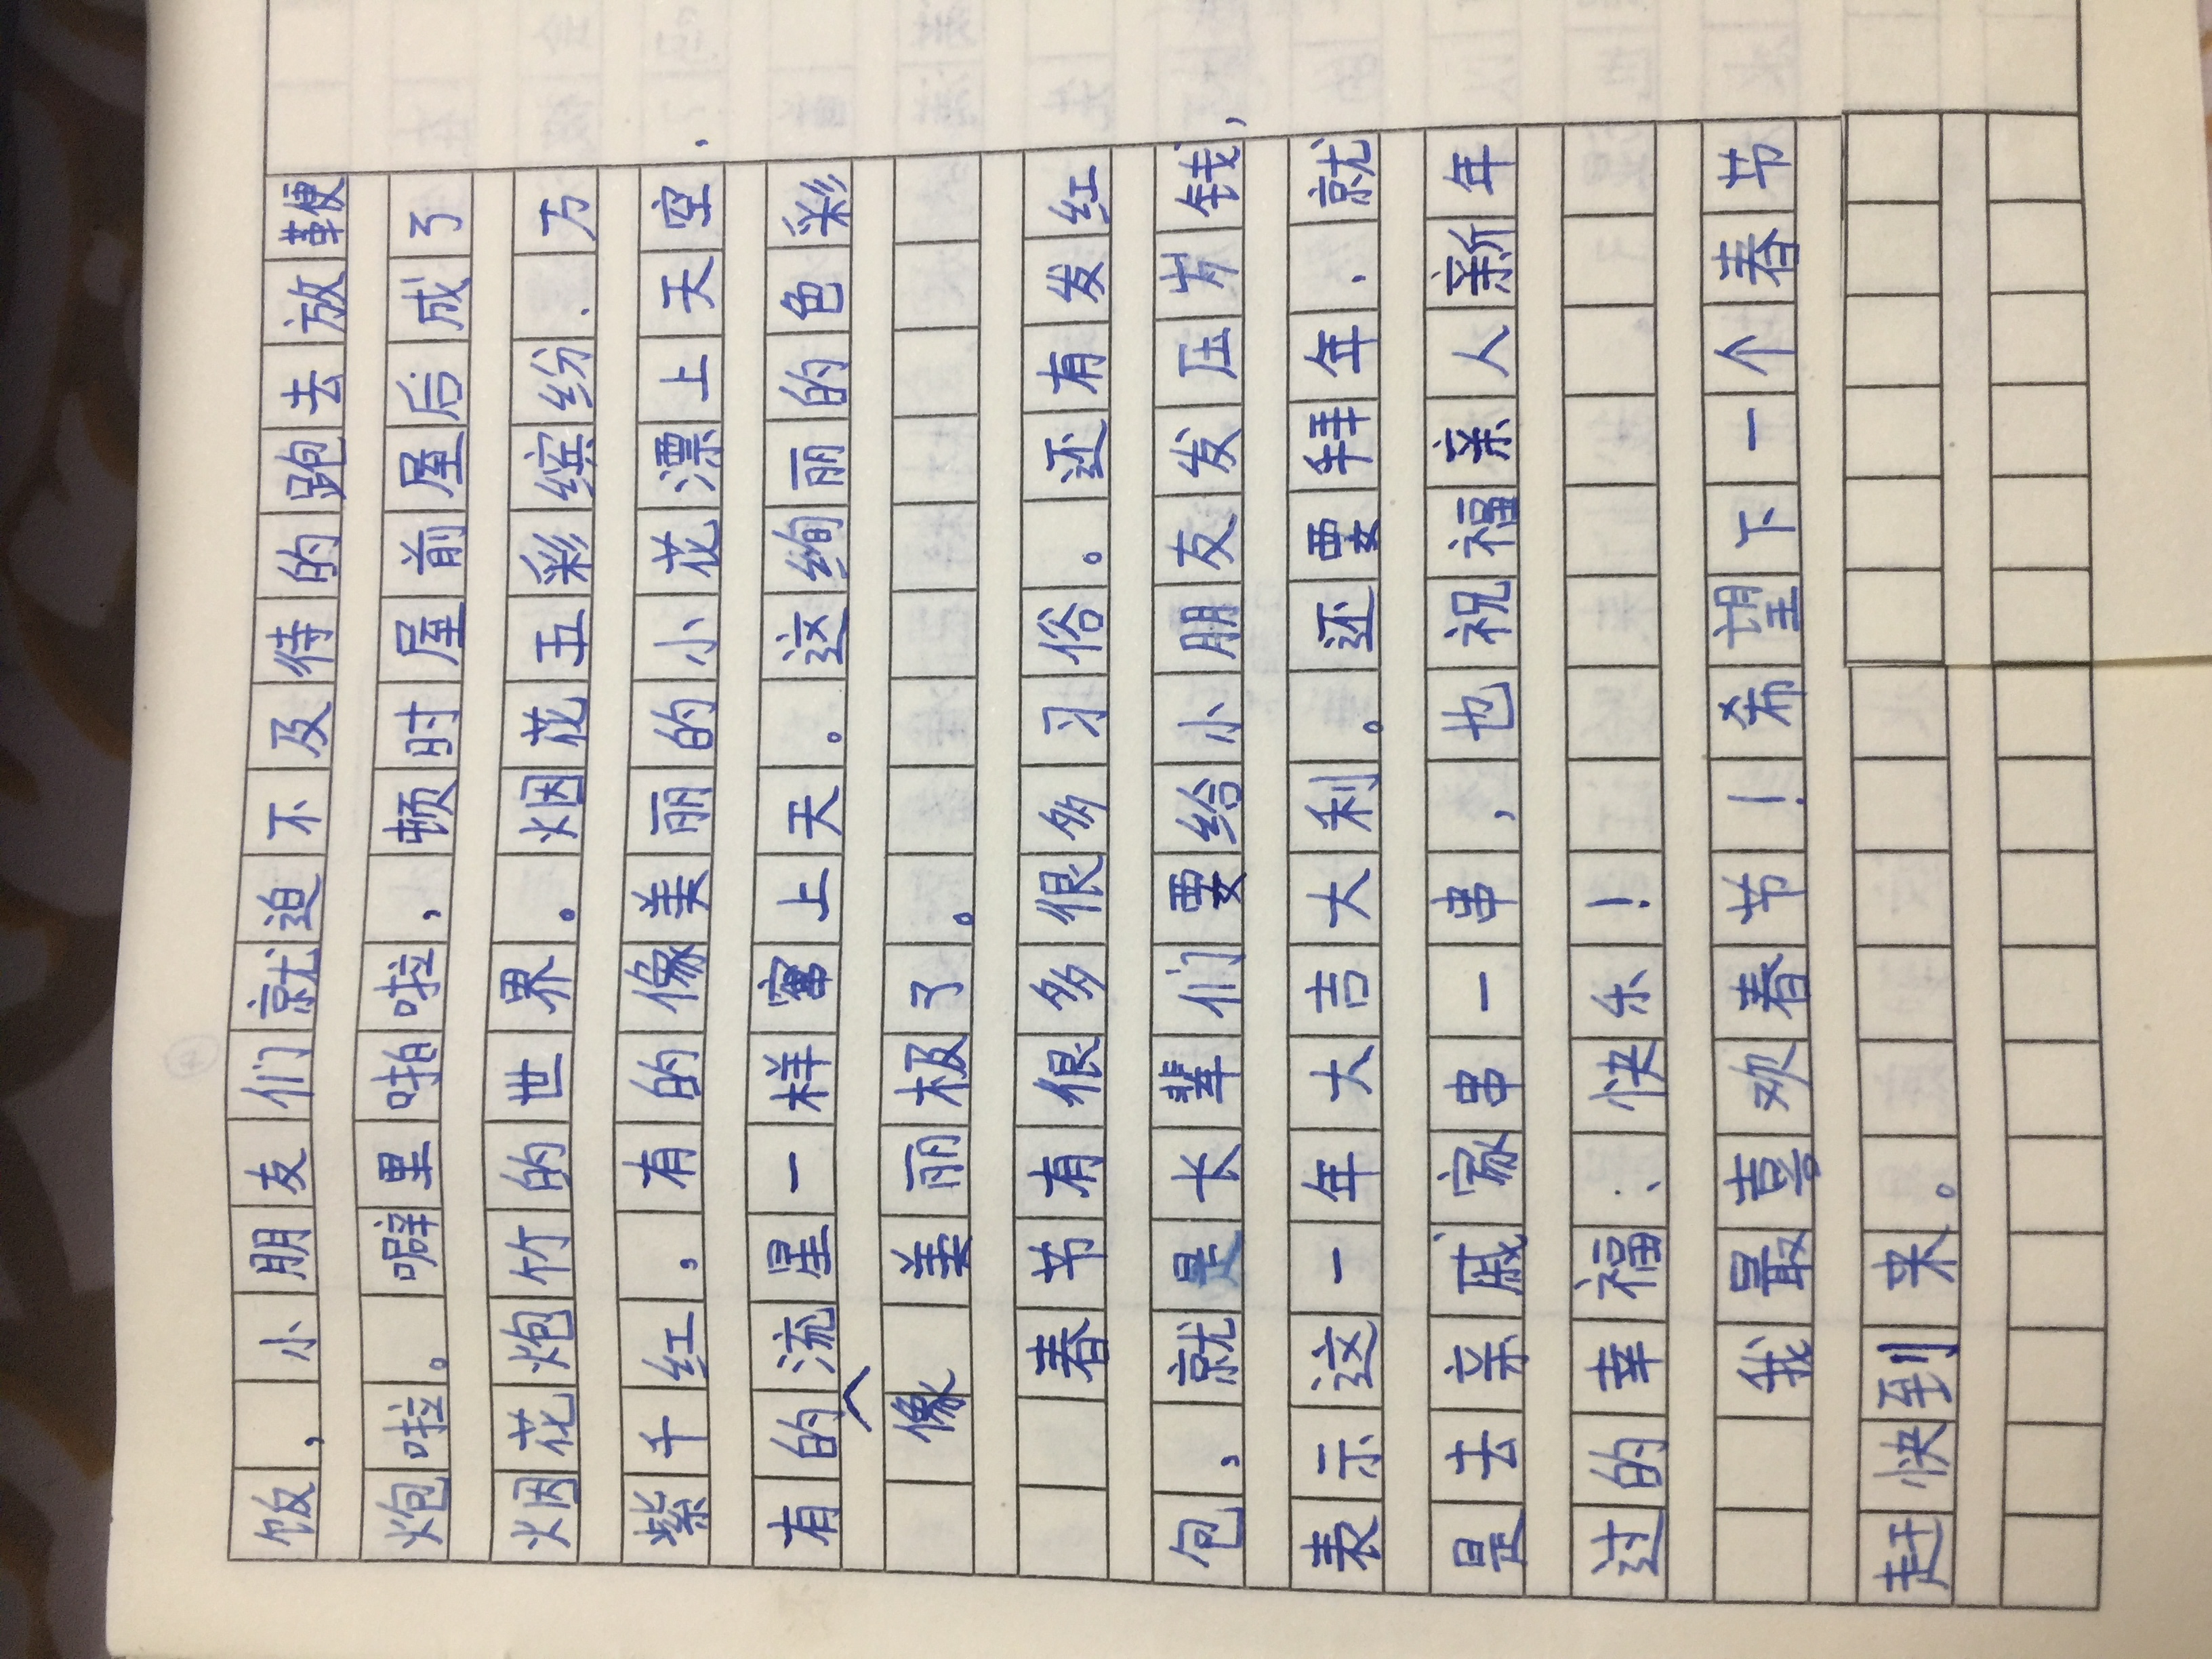 饭，小朋友们就迫不及待的跑去放鞭
炮啦。噼里啪啦，顿时屋前屋后成了
烟花炮竹的世界。烟花五彩缤纷、万
紫千红，有的像美丽的小花漂上天空、
有的像流星一样窜上天。这绚丽的色彩
美丽极了。
春节有很多很多习俗。还有发红
包，就是长辈们要给小朋友发压岁钱，
表示这一年大吉大利。还要拜年、就
是去亲戚家串一串，也祝福亲人新年
过的幸福、快乐！
我最喜欢春节！希望下一个春节
赶快到来。